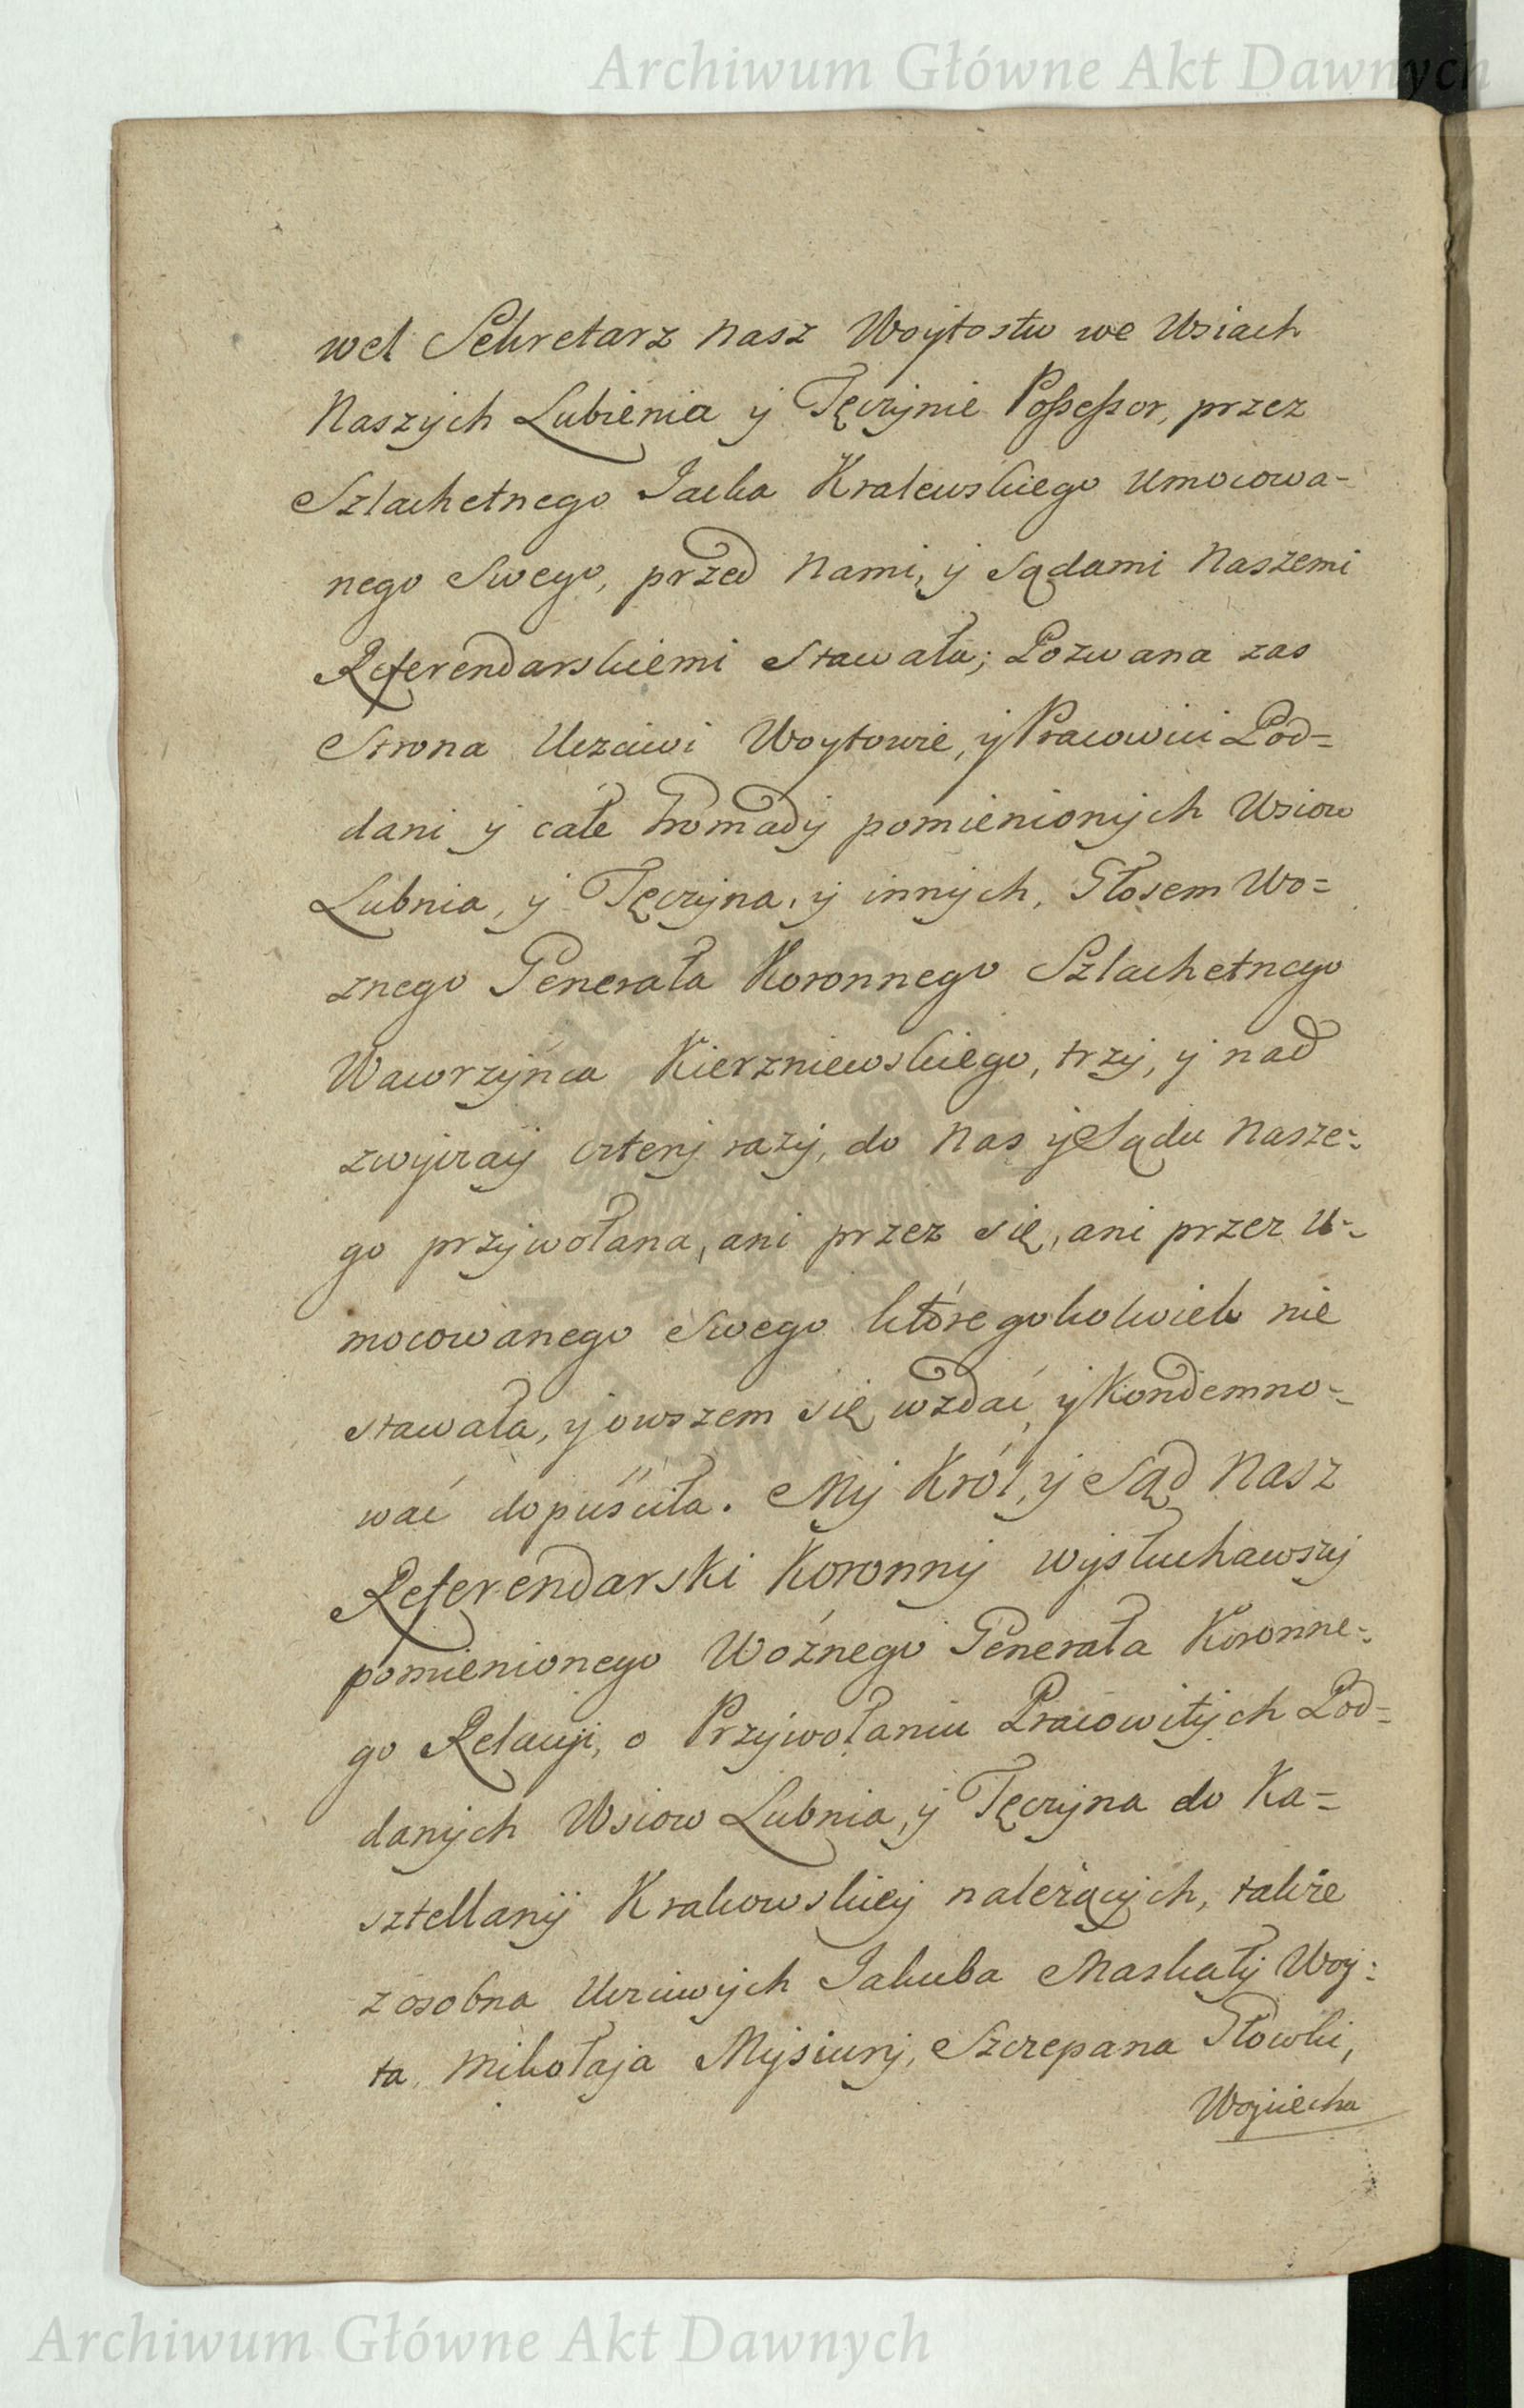 Archiwum Główne Akt Dawnych
wel Sekretarz Nasz Woytostw we Wsiach
Naszÿch Lubienia ÿ Tęczÿnie Possessor, przez
Szlachetnego Jacka Kralewskiego Umocowa-
nego Swego, przed Nami, ÿ Sądami Naszemi
Referendarskiemi Stawała; Pozwana zas
Strona Uczciwi Woytowie, ÿ Pracowici Pod=
dani ÿ całe Gromadÿ pomienionÿch Wsiow
Lubnia, ÿ Tęczÿna, ÿ innÿch, Głosem Wo=
znego Generała Koronnego Szlachetnego
Wawrzÿńca Kierzniewskiego, trzÿ, ÿ nad
zwÿczaÿ czterÿ razÿ, do Nas ÿ Sądu Nasze=
go przÿwołana, ani przez się, ani przez U=
mocowanego Swego któregokolwiek nie
stawała, ÿ owszem się wzdać, ÿ Kondemno=
wać dopuściła. Mÿ Król, ÿ Sąd Nasz
Referendarski Koronnÿ wÿsłuchawszÿ
pomienionego Woźnego Generała Koronne=
go Relacÿi, o Przÿwołaniu Pracowitÿch Pod=
danÿch Wsiow Lubnia, ÿ Tęczÿna do Ka=
sztellanÿ Krakowskieÿ należącÿch, także
zosobna Uczciwÿch Jakuba Maskałÿ Woÿ=
ta, Mikołaja Mÿsiurÿ, Szczepana Głowki,
Wojciecha
Archiwum Główne Akt Dawnych